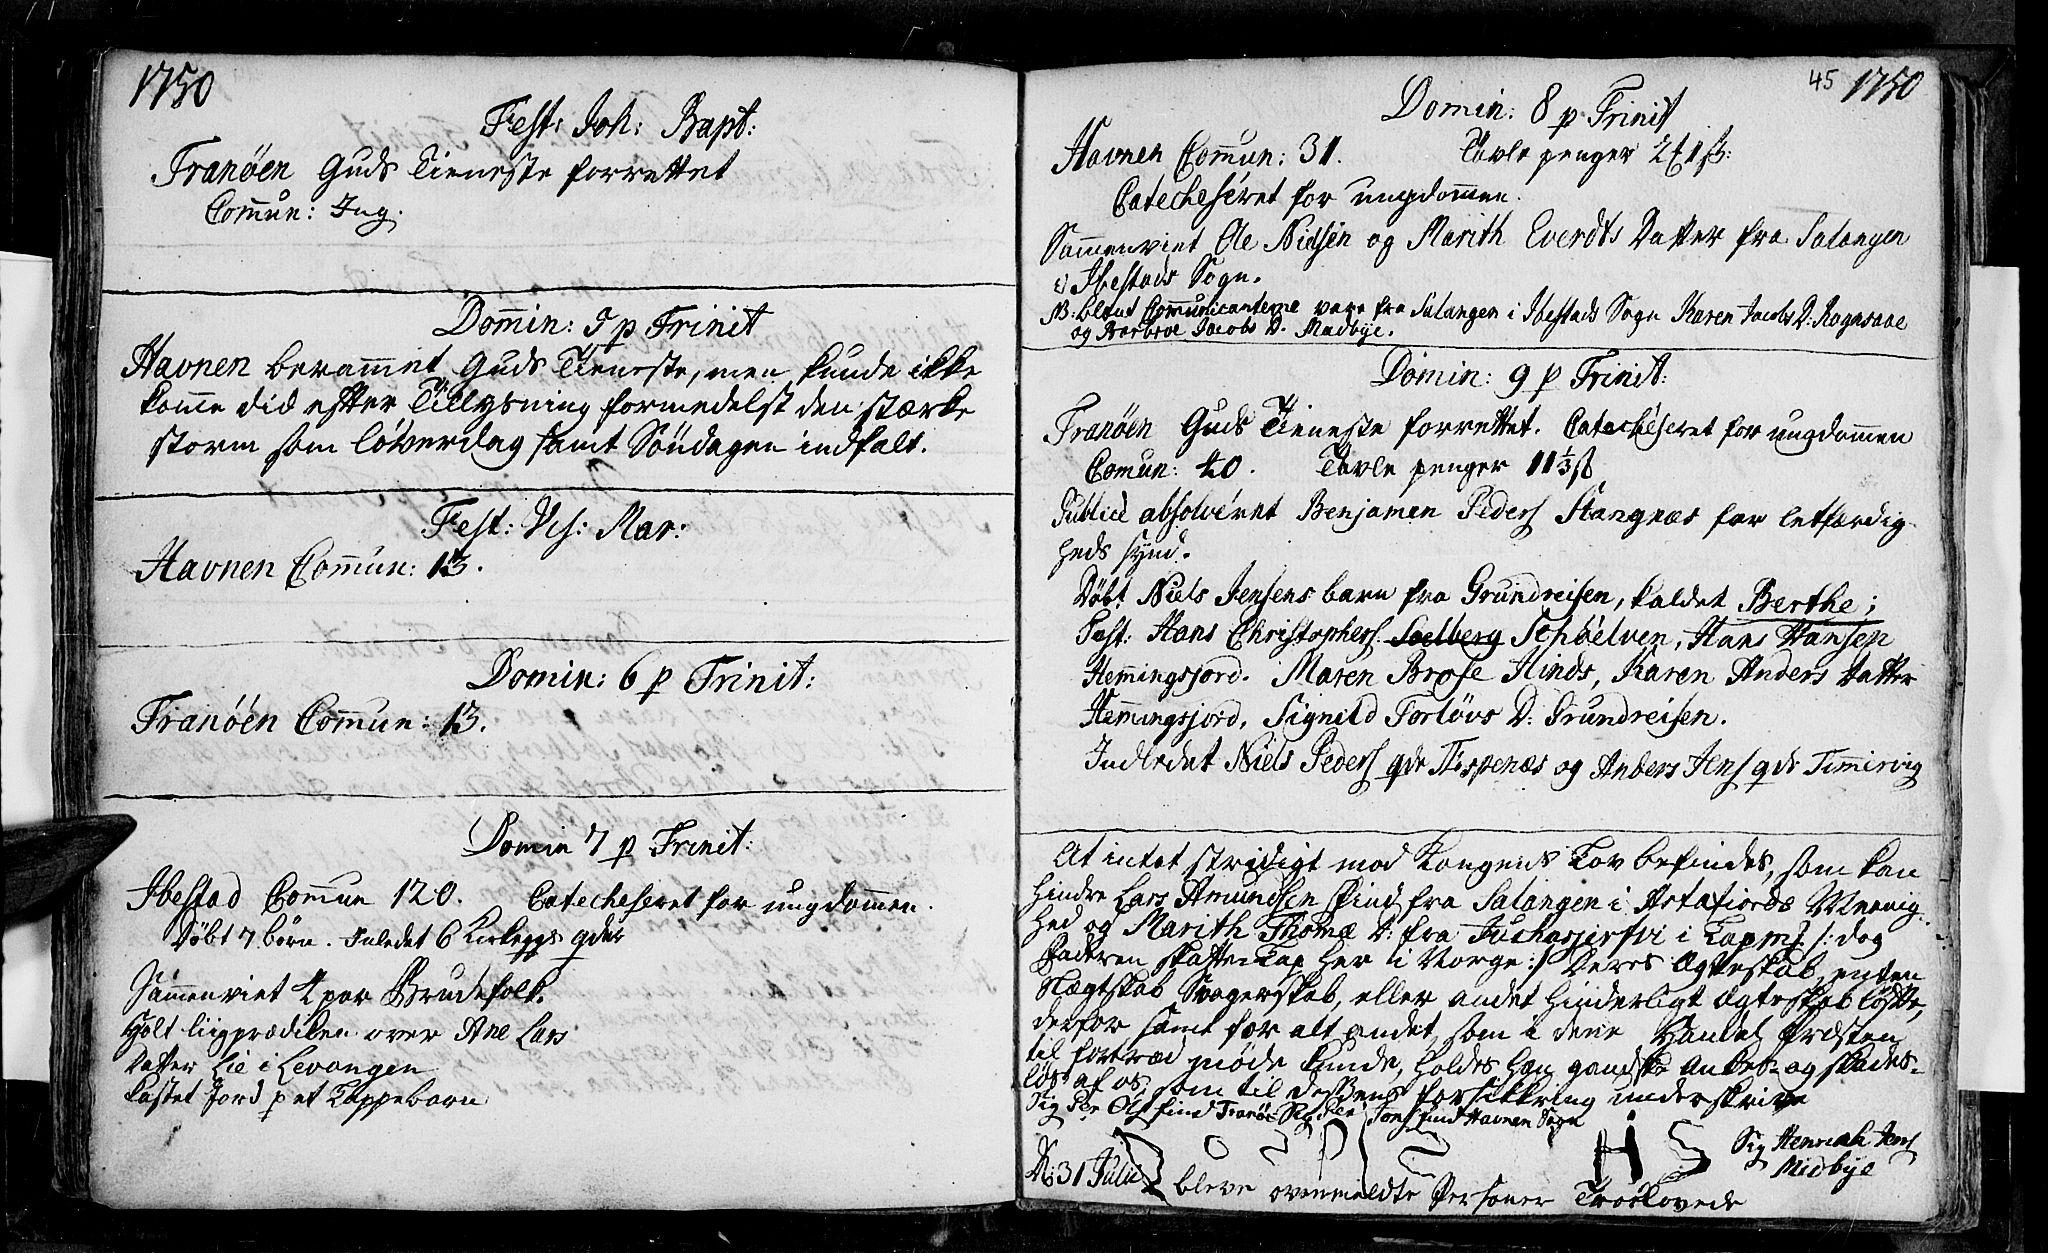 1750
Fest: Joh: Bapt:
Tranöen Guds Tieneste forrettet
Com̅un: Ing.
Dom̅in: 5 p Trinit
Havnen beram̅et Guds Tieneste, men kunde ikke
kom̅e did efter Tillysning formedelst den stærke
storm som löverdag samt Söndagen indfalt.
Fest: Vis: Mar:
Havnen Com̅un: 13.
Domin: 6 p Trinit:
Tranöen Com̅un: 13.
Domin 7 p Trinit:
Ibestad Com̅un 120. Catecheseret for ungdom̅en.
Döbt 7 börn. Inledet 6 Kirkeggs qder
Sam̅enviet 4 par Brudefolk.
Holt liigprædiken over Ane Lars
Datter Lie i Levangen
kastet Jord p et Lappebarn
45 1750
Domin: 8 p Trinit
Havnen Com̅un: 31. Tavle penger
Catecheseret for ungdom̅en.
Sam̅enviet Ole Nielsen og Marith Everdts Datter fra Salangen
i Ibestads Sogn.
NB: blant Com̅unicanterne vare fra Salangen i Ibestads Sogn Karen Jacobs D. Rognsaae
og Barbroe Jacobs D. Madbye.
Domin: 9 p Trinit:
Tranöen Guds Tieneste forrettet. Catecheseret for ungdom̅en
Com̅un: 40. Tavle penger 11⅓ ß
Publicè absolveret Benjamen Peders Stangnæs for letfærdig-
heds synd.
Döbt Niels Jensens barn fra Grundreisen, kaldet Berthe;
Test: Hans Christophers. Soelberg Schöelven, Hans Hansen
Hem̅ingsjord. Maren Brose Hinds, Karen Anders Datter
Hem̅ingsjord, Signild Torlövs D: Grundreisen.
Indledet Niels Peders qde Tispenæs og Anders Jens qde Tim̅ervig
At intet stridigt mod Kongens Lov befindes, som kan
hindre Lars Amundsen Find fra Salangen i Astafiords Menig-
hed og Marith Thomæ D: fra Juchasjerfvi i Lapm: /: dog
Faderen skatte-Lap her i Norge :/ Deres Ægteskab, enten
Slægtskab Svogerskab, eller andet hinderligt ægteskab löfte,
derfor samt for alt andet, som i dene Handel Præsten
til fortræd möde kunde, holdes han gandske Anker- og skades-
lös af os, som til dessens forsikkring underskrive
Sig Per Ols find Tranöe Jons find Havnen Sogn
H S Sig Henrich Jens
Midbye
D: 31 Julii bleve ovenmeldte Personer Troelovede